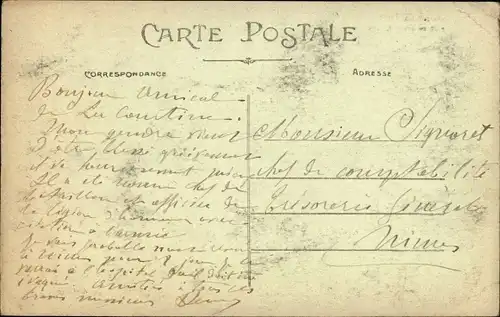 CARTE POSTALE
CORRESPONDANCE
ADRESSE
Bonjour amical
de La Courtine.
Mon gendre vient
d'être blessé grièvement
et de
Il a été nommé chef de
Bataillon et officier de
la légion d'honneur avec
citation à l'armée
Je vais probablement
à pour 8 jours le
à l'hopital
Amitiés à tous
Monsieur Signoret
chef de comptabilité
Trésorerie Générale
Nimes